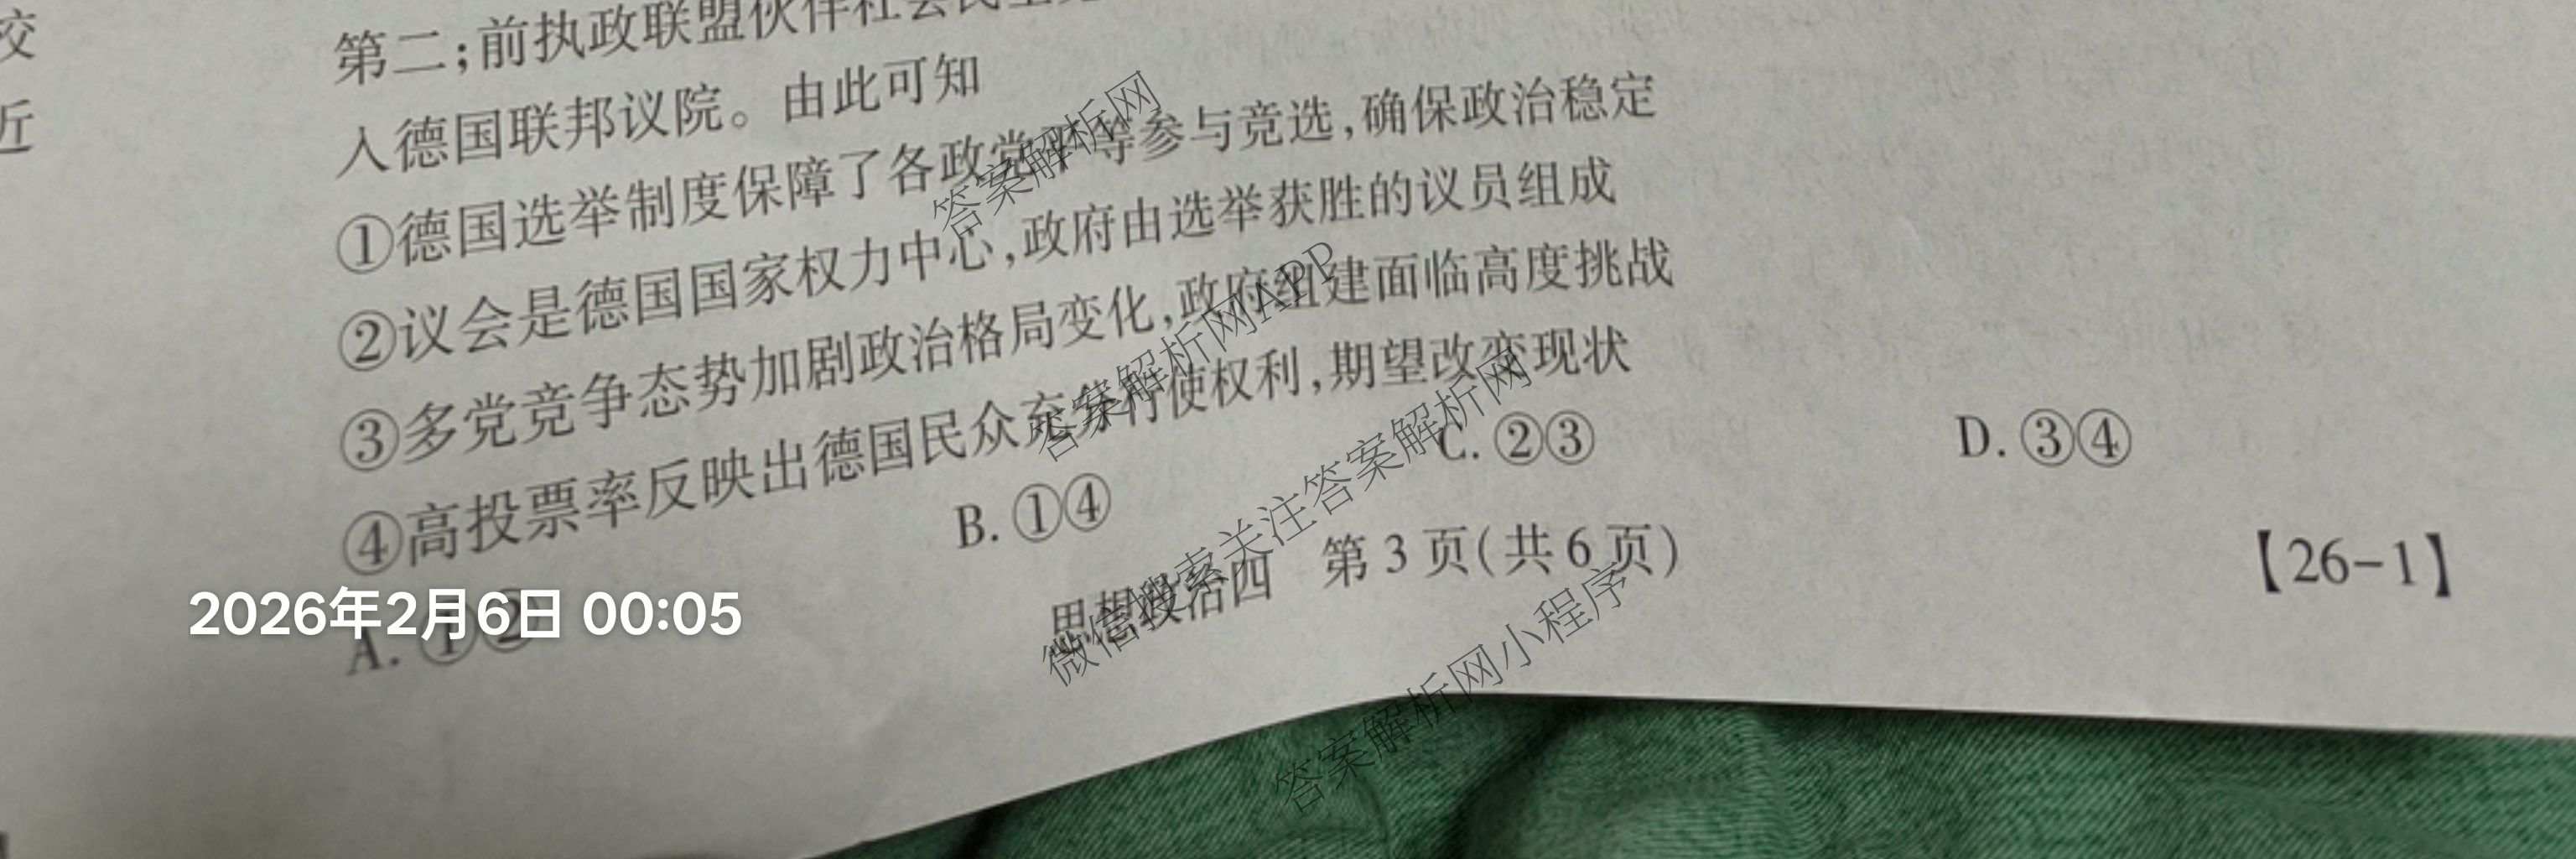 校
近
第二;前执政联盟伙伴社会民主党
入德国联邦议院。由此可知
①德国选举制度保障了各政党平等参与竞选,确保政治稳定
②议会是德国国家权力中心,政府由选举获胜的议员组成
③多党竞争态势加剧政治格局变化,政府组建面临高度挑战
④高投票率反映出德国民众充分行使权利,期望改变现状
A. ①② B. ①④ C. ②③ D. ③④
思想政治四 第3页(共6页) 【26-1】
2026年2月6日 00:05
答案解析网
答案解析网APP
微信搜索关注答案解析网
答案解析网小程序